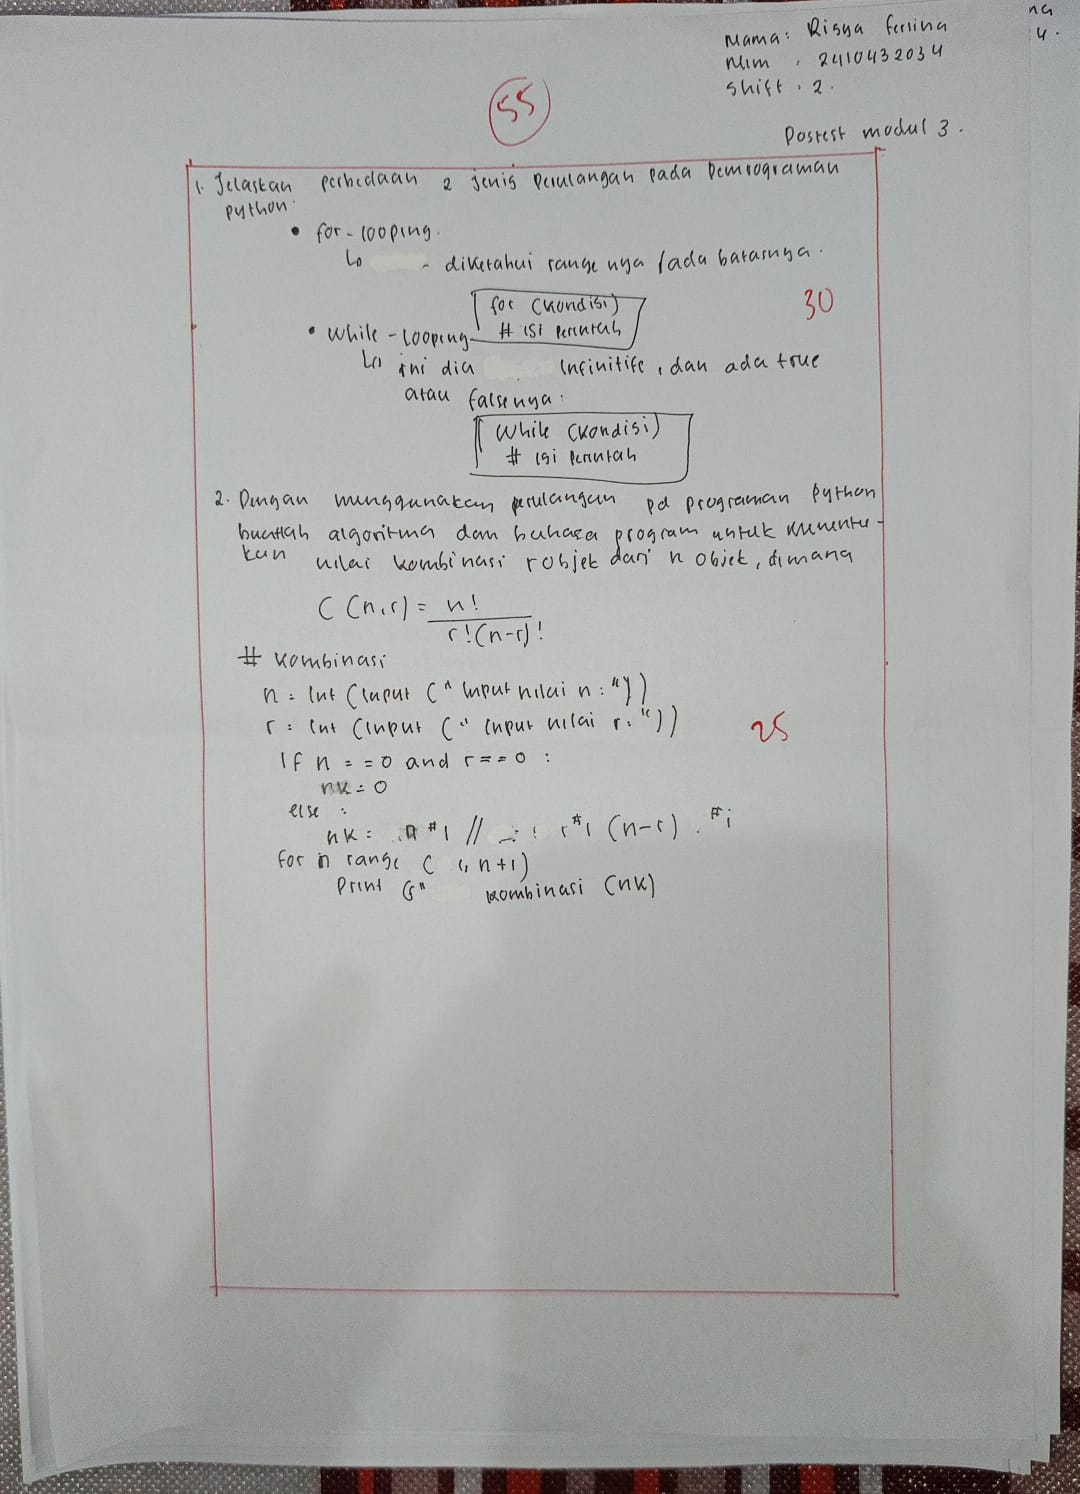 na
4.
Nama: Risya Ferlina
Nim : 2410432034
Shift : 2.
55
Postest modul 3.
1. Jelaskan perbedaan 2 jenis perulangan pada pemrograman
python.
• for-looping.
↳ - diketahui range nya /ada batasnya.
for (kondisi)
# isi perintah
30
• While-Looping
↳ ini dia Infinitife, dan ada true
atau falsenya:
While (kondisi)
# isi perintah
2. Dengan menggunakan perulangan pd programan python
buatlah algoritma dan bahasa program untuk menentu-
kan nilai kombinasi r objek dari n objek, dimana
C (n,r) = n!
r!(n-r)!
# kombinasi
n = int (input (" input nilai n: "))
r = int (input (" input nilai r: "))
25
If n == 0 and r == 0 :
nk = 0
else :
nk = n # 1 // r # 1 (n-r) . # i
for in range ( 1, n+1)
Print kombinasi (nk)